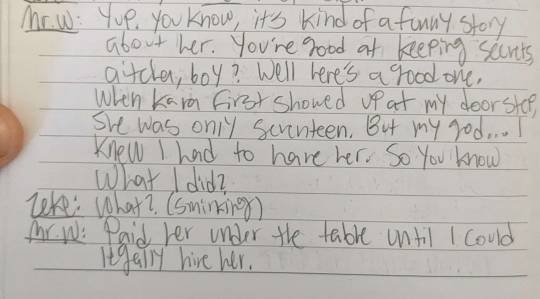 Mr.W: Yup. You know, it's kind of a funny story
about her. You're good at keeping secrets,
aitcha, boy? Well here's a good one.
When Kara first showed up at my doorstep,
She was only seventeen. But my god... I
Knew I had to have her. So you know
What I did?
Zeke: What? (Smirking)
Mr.W: Paid her under the table until I could
legally hire her.